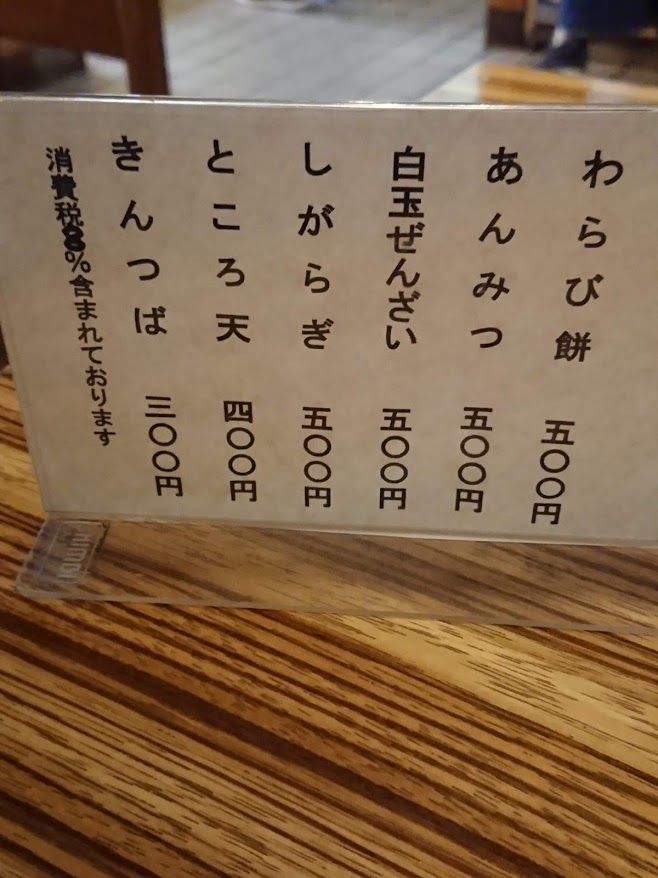 わらび餅 五〇〇円
あんみつ 五〇〇円
白玉ぜんざい 五〇〇円
しがらぎ 五〇〇円
ところ天 四〇〇円
きんつば 三〇〇円
消費税8%含まれております